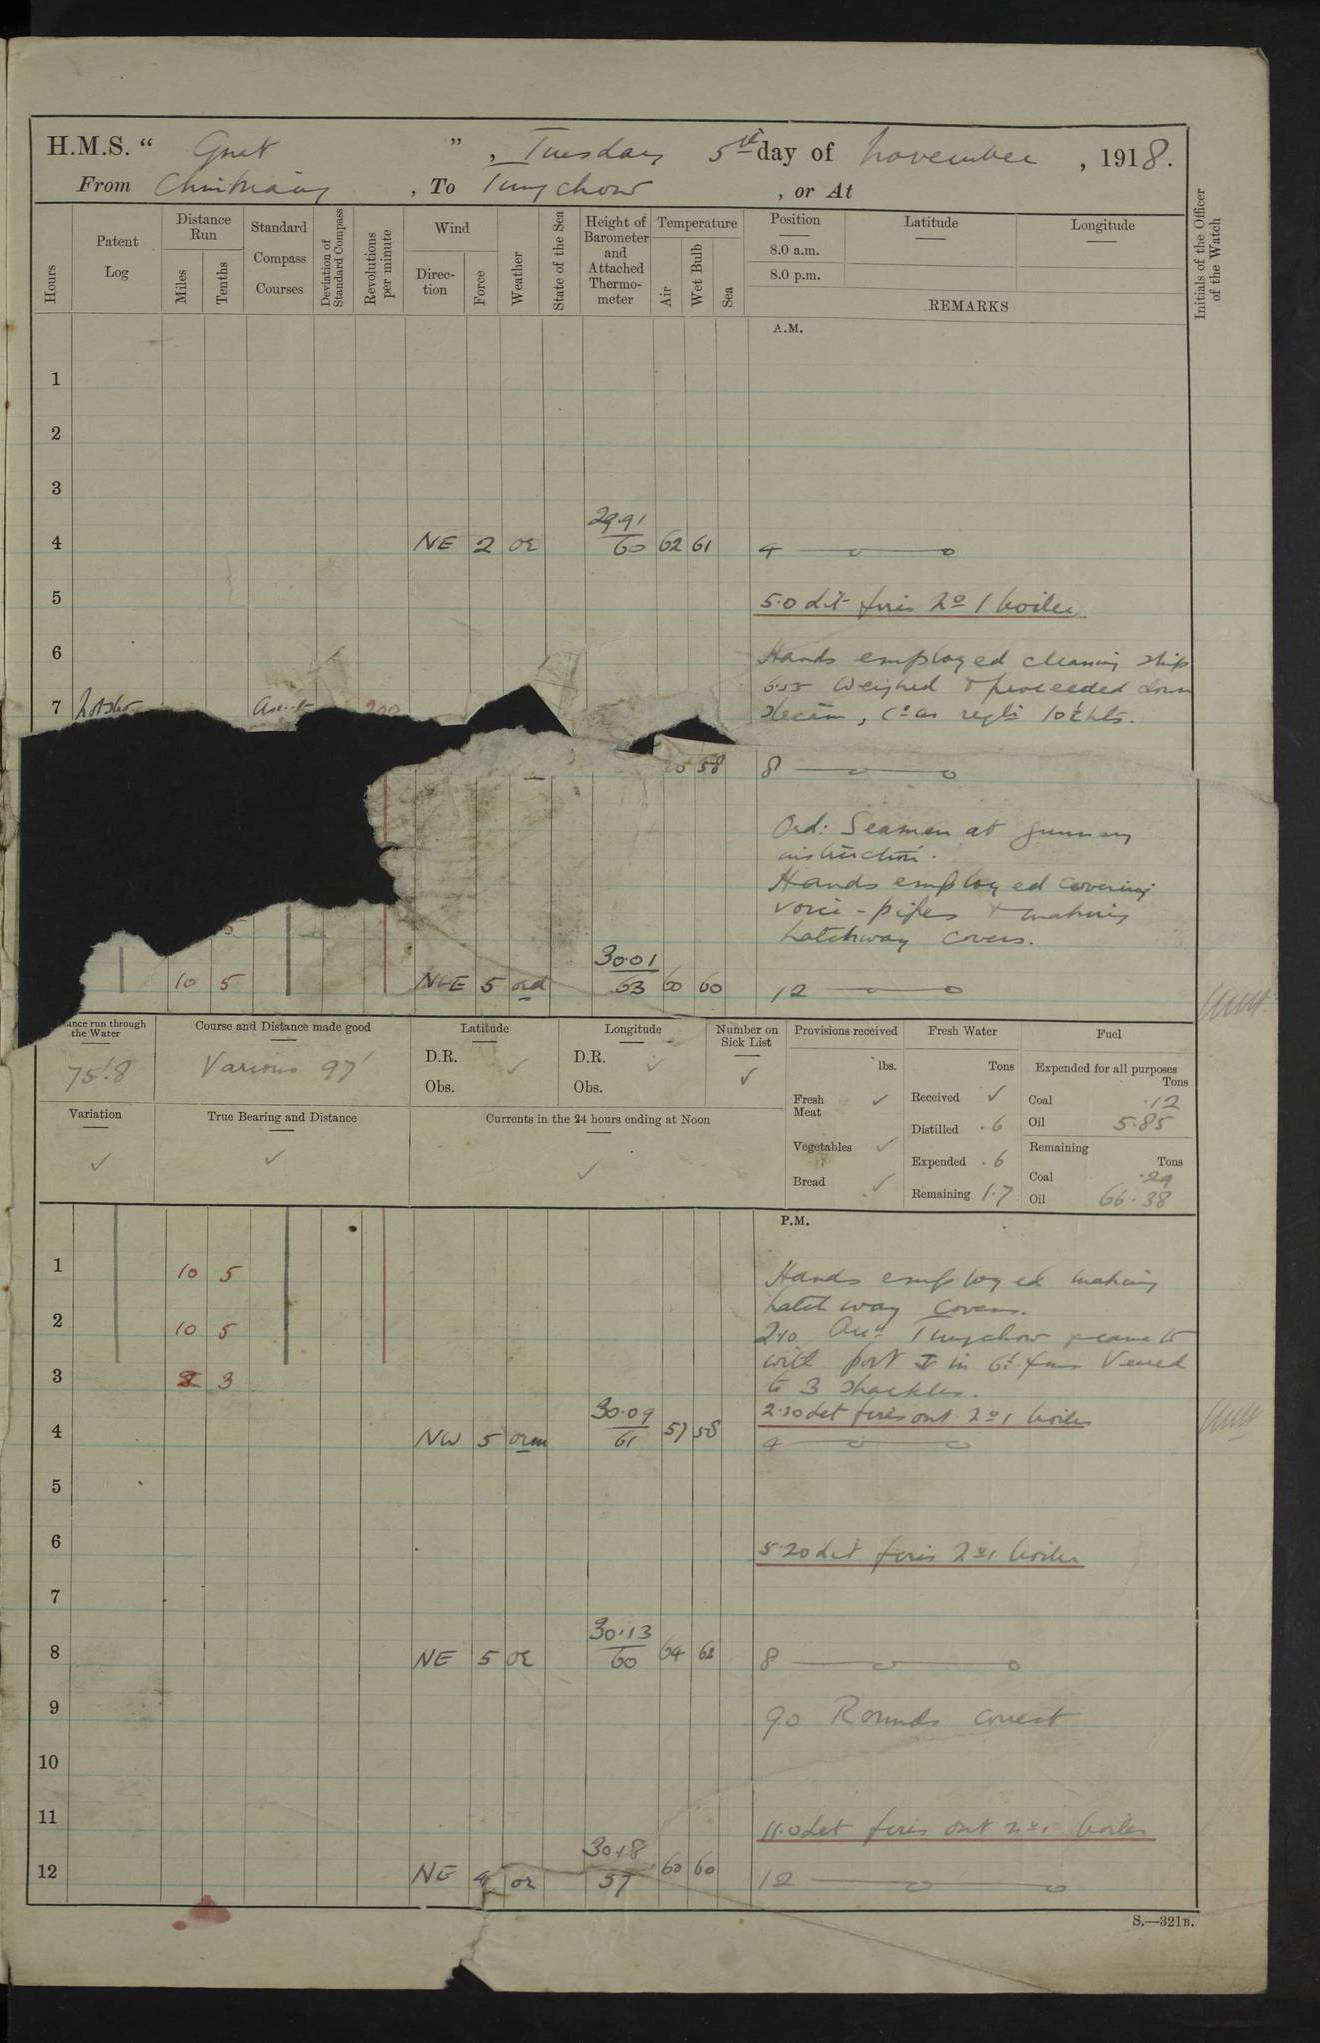 H.M.S. “ Gnat ” , Tuesday 5th day of November , 1918.
From Chinkiang , To Tungchow , or At
Hours
Patent Log
Distance Run
Miles
Tenths
Standard Compass Courses
Deviation of Standard Compass
Revolutions per minute
Wind
Direction
Force
Weather
State of the Sea
Height of Barometer and Attached Thermometer
Temperature
Air
Wet Bulb
Sea
Position
8.0 a.m.
8.0 p.m.
Latitude
Longitude
REMARKS
Initials of the Officer of the Watch
A.M.
1
2
3
4 NE 2 oc 29.91 60 62 61 4
5 5.0 Lit fires No 1 boiler
6 Hands employed cleaning ship
6.55 Weighed & proceeded down
7 stream, Cos as req
200
58 8
Ord: Seamen at gunnery
instruction.
Hands employed covering
voice-pipes & making
hatchway covers.
5
10 5 NEE 5 ocd 30.01 63 60 60 12
ance run through the Water
75.8
Course and Distance made good
Various 97'
Latitude
D.R. ✓
Obs.
Longitude
D.R. ✓
Obs.
Number on Sick List
✓
Provisions received
lbs.
Fresh Meat ✓
Vegetables ✓
Bread ✓
Fresh Water
Tons
Received ✓
Distilled .6
Expended .6
Remaining 1.7
Fuel
Expended for all purposes
Tons
Coal .12
Oil 5.85
Remaining
Tons
Coal .29
Oil 66.38
Variation
✓
True Bearing and Distance
✓
Currents in the 24 hours ending at Noon
✓
P.M.
1 10 5 Hands employed making
hatchway covers.
2 10 5 2.10 Arr Tungchow & came to
with port in 6 fms Veered
3 3 to 3 shackles.
2.30 Let fires out No 1 boiler
4 NW 5 30.09 61 57 58 4
5
6 5.20 Lit fires No 1 boiler
7
8 NE 5 oc 30.13 60 64 62 8
9 9.0 Rounds correct
10
11 11.0 Let fires out No 1 boiler
12 NE 4 oc 30.18 57 60 60 12
S.—321B.